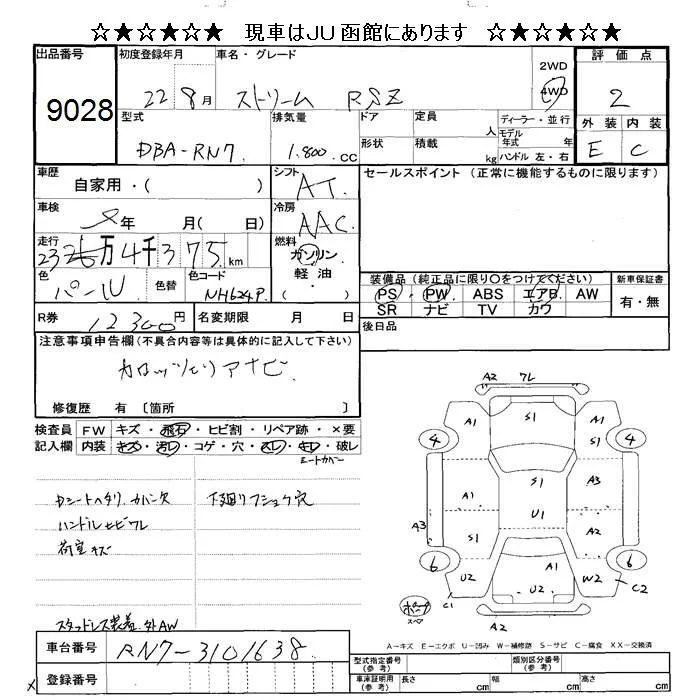 ☆★☆★☆ 現車はJU函館にあります ☆★☆★☆
出品番号 初度登録年月 車名・グレード 2WD 4WD 評価点
9028 22 8月 ストリーム RSZ 2
型式 排気量 ドア 定員 人 ディーラー・並行 外装 内装
DBA-RN7. 1.800.CC 形状 積載 kg モデル年式 年 ハンドル 左・右 E C
車歴 自家用・( ) シフト AT. セールスポイント (正常に機能するものに限ります)
車検 年 月( 日) 冷房 AAC.
走行 23 万4千375 km 燃料 ガソリン・軽油・
色 パール 色替 色コード NH624P.
装備品(純正品に限り〇をつけてください) 新車保証書
PS・PW・ABS・エアB・AW 有・無
SR ナビ TV カワ
R券 12300円 名変期限 月 日 後日品
注意事項申告欄(不具合内容等は具体的に記入して下さい)
カロッツェリアナビ
修復歴 有〔箇所 〕
検査員 FW キズ・飛石・ヒビ割・リペア跡・×要
記入欄 内装 キズ・汚レ・コゲ・穴・スレ・キレ・破レ
シートカバー
Dシートヘタリ カバー欠 下廻りフショク穴
ハンドルヒビワレ
荷室キズ
スタッドレス装着.外AW
A2 ワレ
A1 S1 A1
4 4
S1
A1 A3
U1
A3 S1 A2
A1
6 6
U2 U2 W2
C1 C2
スペア
A2
A-キズ E-エクボ U-凹み W-補修跡 S-サビ C-腐食 XX-交換済
車台番号 RN7-3101638
登録番号
型式指定番号(参考) 類別区分番号(参考)
車庫証明用(参考) 長さ cm 幅 cm 高さ cm